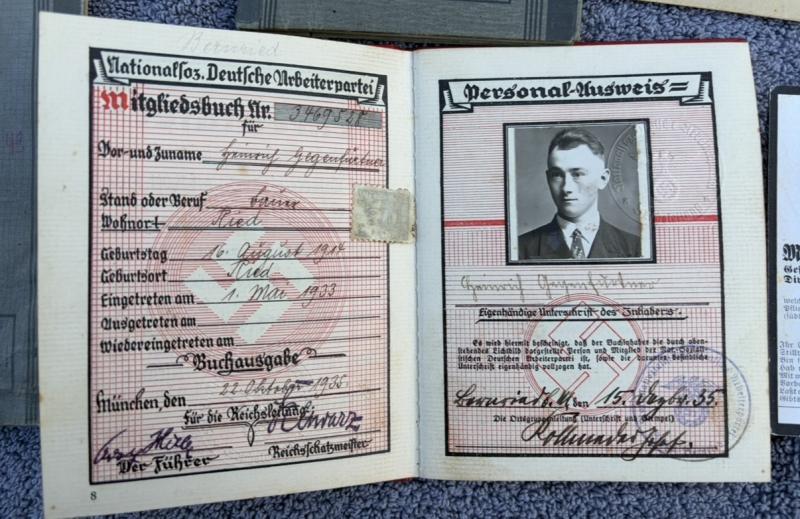 Bernried
Nationalsoz. Deutsche Arbeiterpartei
Mitgliedsbuch Nr. 3469528
für
Vor- und Zuname Heinrich Gegenfurtner
Stand oder Beruf Bauer
Wohnort Ried
Geburtstag 16. August 1914
Geburtsort Ried
Eingetreten am 1. Mai 1933
Ausgetreten am
Wiedereingetreten am
Buchausgabe
München, den 22. Oktober 1935
Für die Reichsleitung
Schwarz
Der Führer
Reichsschatzmeister
8
Personal-Ausweis
Heinrich Gegenfurtner
Eigenhändige Unterschrift des Inhabers.
Es wird hiermit bescheinigt, daß der Buchinhaber die durch oben-
stehendes Lichtbild dargestellte Person und Mitglied der Nat.-Sozialis-
tischen Deutschen Arbeiterpartei ist, sowie die darunter befindliche
Unterschrift eigenhändig vollzogen hat.
den 15. Dezbr. 35.
Die Ortsgruppenleitung (Unterschrift und Stempel)